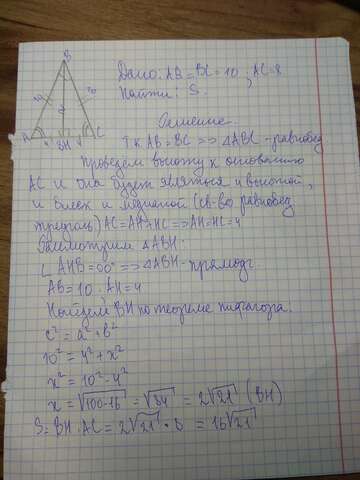 B
Дано: AB = BC = 10 ; AC = 8
Найти: S.
10
10
A
8
H
C
Решение.
Т.к AB = BC => ΔABC - равнобед
Проведем высоту к основанию
AC и она будет являться и высотой,
и биссек и медианой (св-во равнобед
треуголь) AC = AH + HC => AH = HC = 4
Рассмотрим ΔABH:
∠AHB = 90° => ΔABH - прямоуг
AB = 10 ; AH = 4
Найдем BH по теореме пифагора.
c² = a² + b²
10² = 4² + x²
x² = 10² - 4²
x = √100-16 = √84 = 2√21 (BH)
S = BH · AC = 2√21 · 8 = 16√21